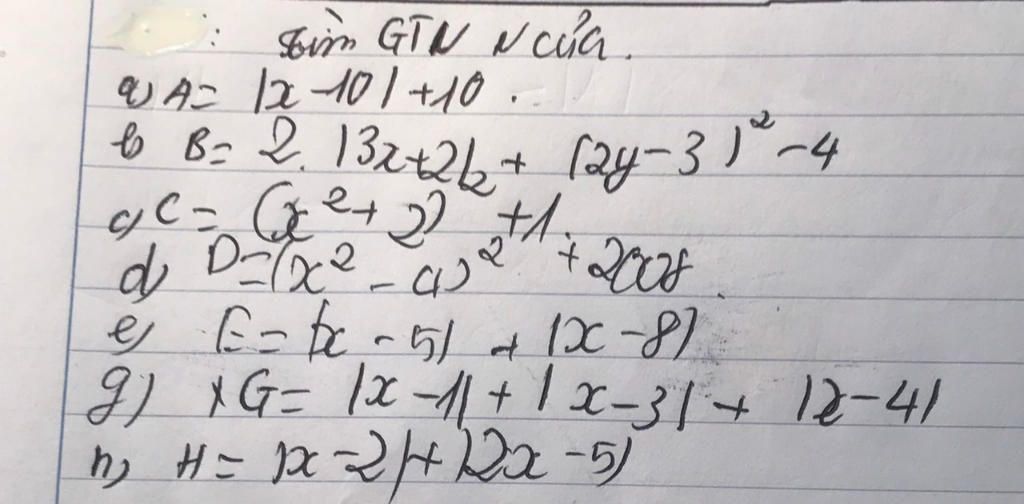 : Tìm GTNN của.
a) A = |x - 10| + 10.
b B = 2. |3x + 2| + (2y - 3)² - 4
c) C = (x² + 2)² + 1.
d) D = (x² - 4)² + 2008.
e) E = |x - 5| + |x - 8|
g) G = |x - 1| + |x - 3| + |x - 4|
h) H = |x - 2| + |2x - 5|